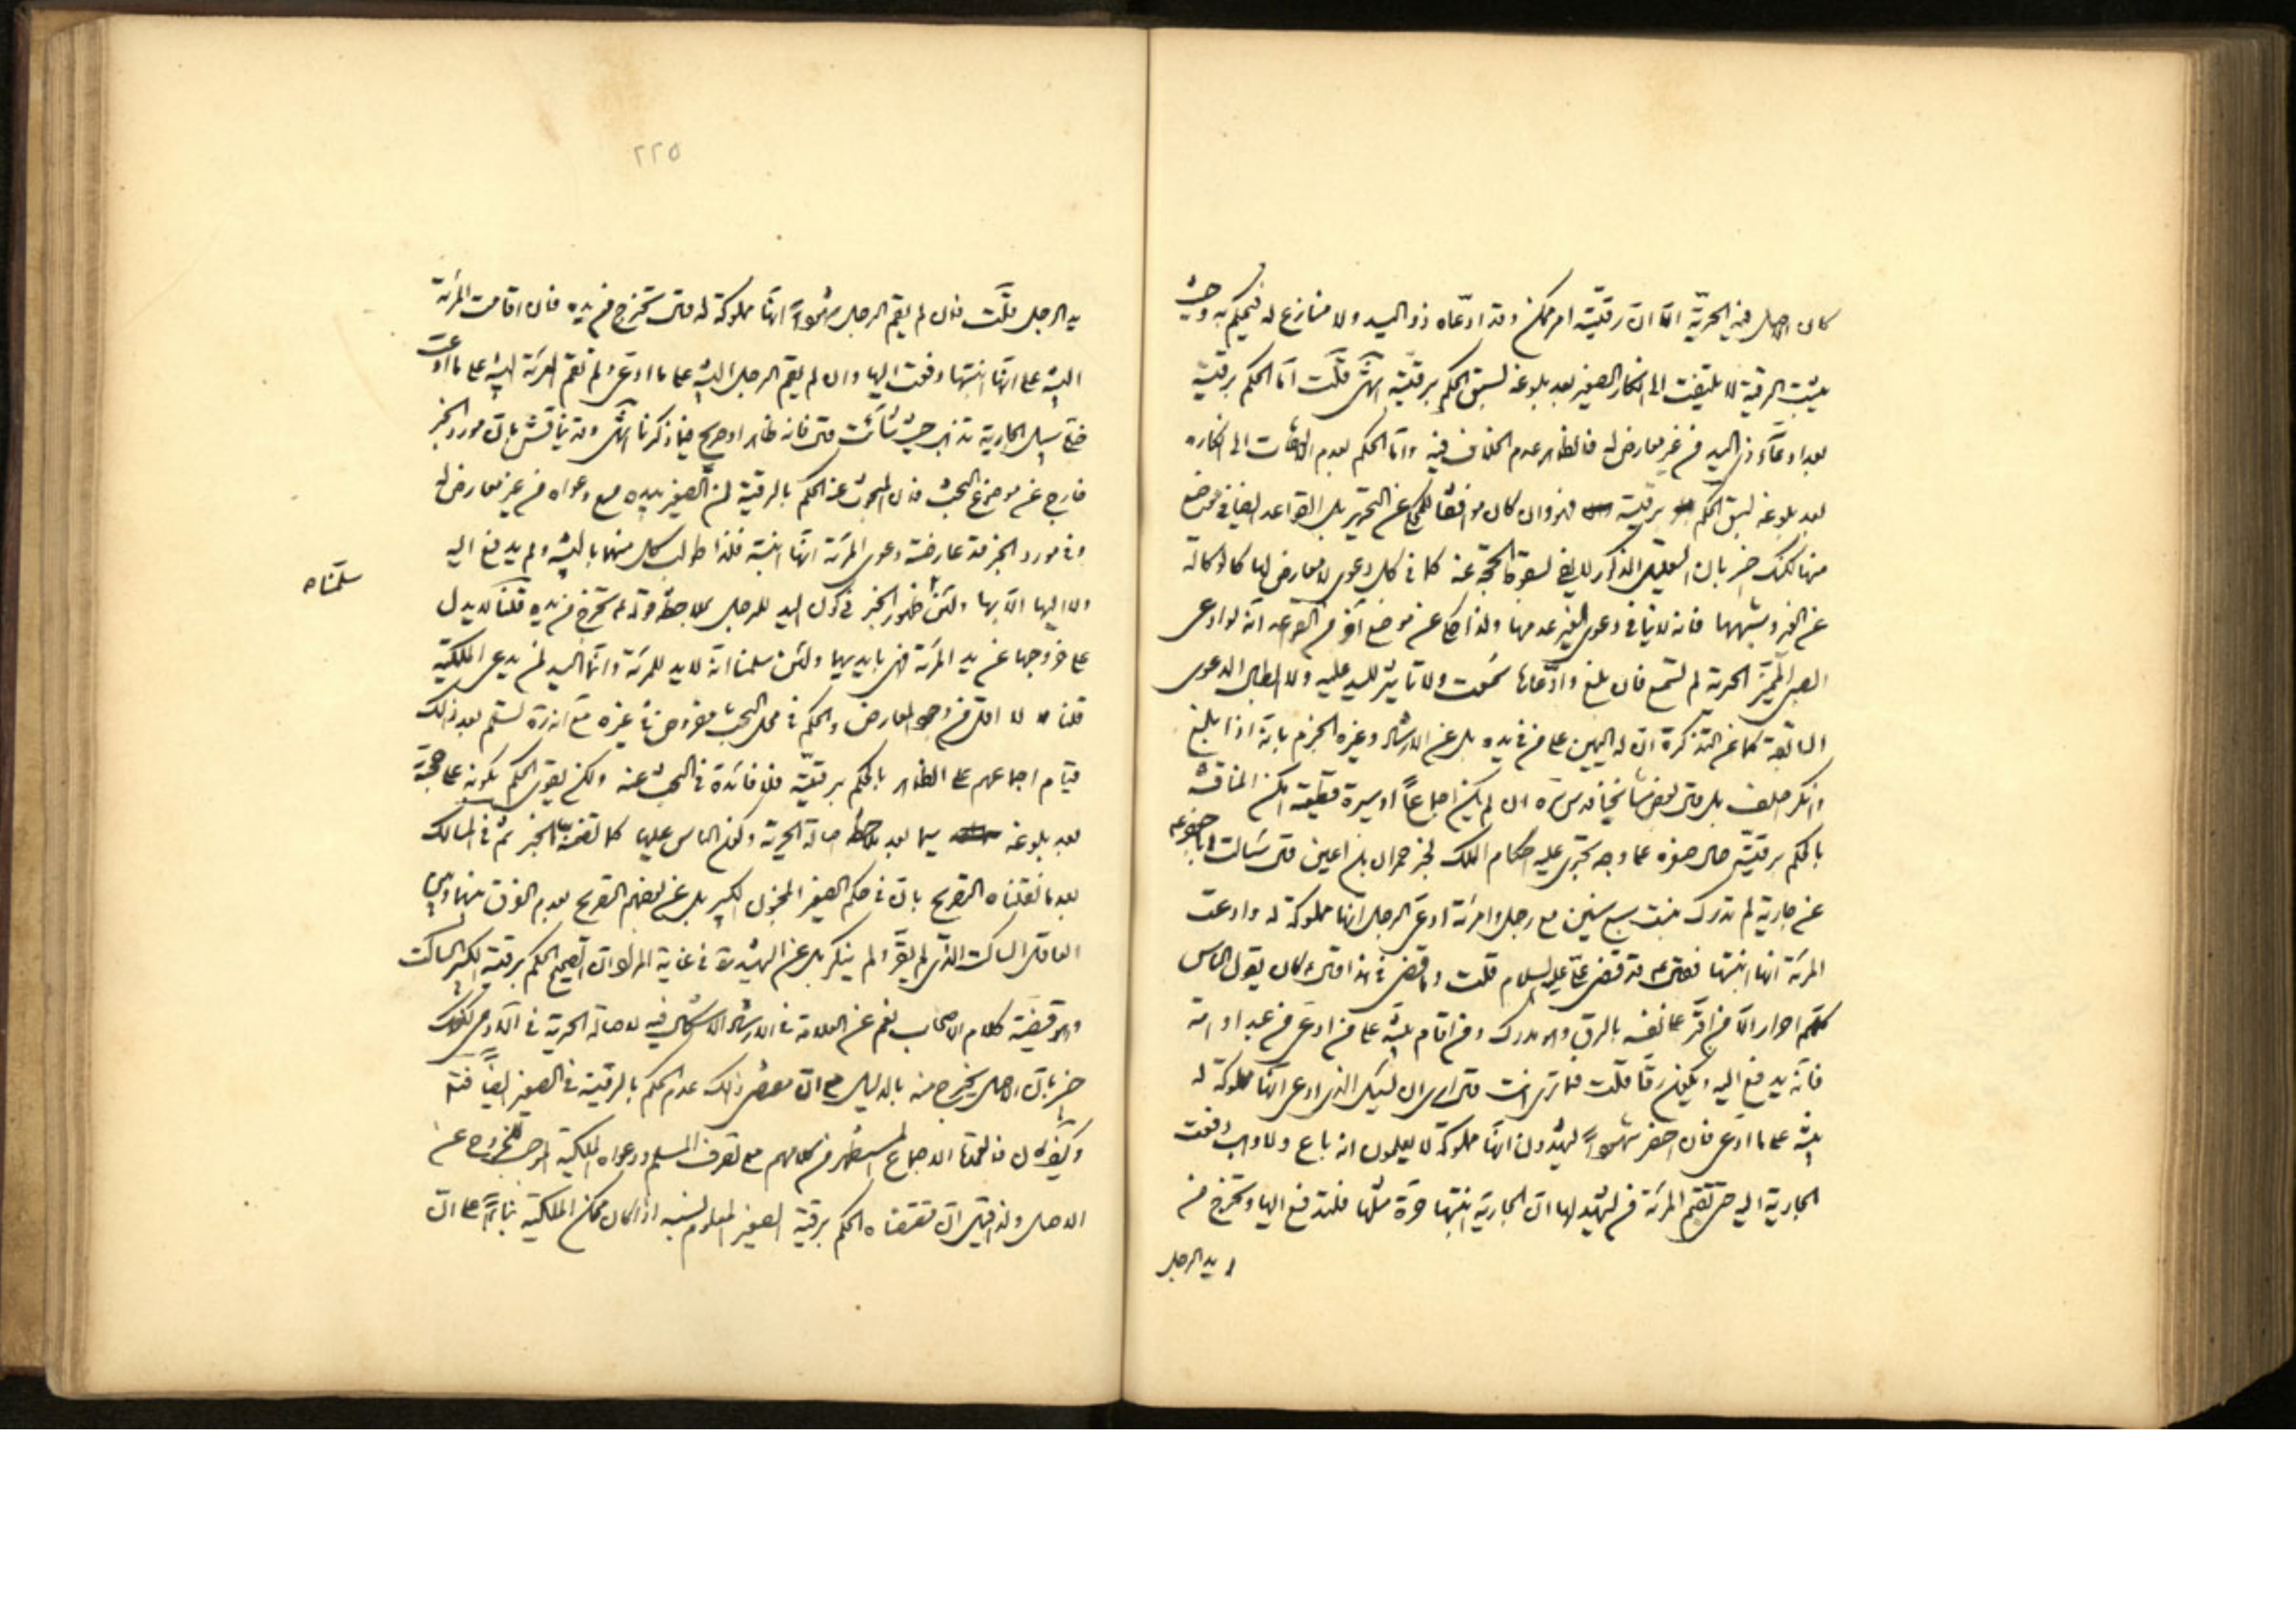 كان الاصل فيه الحريّة الّا انّ رقيّته امر ممكن وقد ادّعاه ذو اليد ولا منازع له فيحكم به وحيث
يثبت الرقية لا يلتفت الى انكار الصغير بعد بلوغه لسبق الحكم برقيّته انتهى قلت امّا الحكم برقيّته
بعد ادعاء ذي اليد من غير معارض له فالظاهر عدم الخلاف فيه وامّا الحكم بعدم الالتفات الى انكاره
بعد بلوغه لسبق الحكم برقيّته فهو وان كان موافقاً للمحكى عن التحرير بل القواعد ايضا في موضع
منها لكنك خبير بان التعليل المذكور لا يفى بسقوط الحجّة عنه كما في كل دعوى لا معارض لها كالوكالة
عن الغير وشبهها فانه لا ينافى دعوى الغير عدمها ولذا حكى عن موضع آخر من القواعد انّه لو ادعى
الصبى المميّز الحرية لم تسمع فان بلغ وادّعاها سمعت ولا تاثير لليد عليه ولا ابطال الدعوى
السابقة كما عن التذكرة انّ له اليمين على من في يده بل عن الارشاد وغيره الجزم بانّه اذا بلغ
وانكر احلف بل قال بعض مشايخنا قدس سره ان لم يكن اجماعاً او سيرة قطعيّة امكن المناقشة
بالحكم برقيّته حال صغره على وجه تجرى عليه احكام الملك لخبر حمران بن اعين قال سالت ابا جعفر ع
عن جارية لم تدرك بنت سبع سنين مع رجل وامرئة ادعى الرجل انّها مملوكة له وادعت
المرئة انّها ابنتها فقال ع قد قضى علىّ عليه السلام قلت وما قضى في هذا قال كان يقول الناس
كلّهم احرار الّا من اقرّ على نفسه بالرق وهو مدرك ومن اقام بيّنة على من ادعى من عبد او امة
فانّه يدفع اليه ويكون رقّا قلت فما ترى انت قال ارى ان يسئل الذى ادعى انّها مملوكة له
بيّنة على ما ادعى فان احضر شهوداً يشهدون انّها مملوكة لا يعلمون انه باع ولا وهب دفعت
الجارية اليه حتى تقيم المرئة من يشهد لها انّ الجارية ابنتها حرّة مثلها فلتدفع اليها وتخرج من
يد الرجل
٢٢٥
يد الرجل قلت فان لم يقم الرجل شهوداً انّها مملوكة له قال تخرج من يده فان اقامت المرئة
البيّنة على انّها ابنتها دفعت اليها وان لم يقم الرجل البيّنة على ما ادعى ولم تقم المرئة البيّنة على ما ادعت
خلى سبيل الجارية تذهب حيث شائت قال فانه ظاهر او صريح فيما ذكرنا انتهى وقد يناقش بانّ مورد الخبر
خارج عن موضع البحث فان المبحوث عنه الحكم بالرقية لمن الصغير بيده مع دعواه من غير معارض له
وفي مورد الخبر قد عارضه دعوى المرئة انّها ابنته فلذا طولب كل منهما بالبيّنة ولم يدفع اليه
ولا اليها الّا بها ولئن ظهور الخبر في كون اليد للرجل بملاحظة قوله ع تخرج من يده قلنا لا يدل
سلّمناه
على خروجها عن يد المرئة فهى بايديهما ولئن سلمنا انّه لا يد للمرئة وانّما اليد لمن يدعى الملكيّة
قلنا لا اقل من وجود المعارض والحكم في محل البحث مفروض في غيره مع انه لا يستقيم بعد ذلك
قيام اجماعهم على الظاهر بالحكم برقيّته فلا فائدة في البحث عنه ولكن يقوى الحكم بكونه على حجّته
بعد بلوغه سيما بعد ملاحظة اصالة الحرية وكون الناس عليها كما تضمّنه الخبر ثم في المسالك
بعد ما نقلناه التصريح بانّ في حكم الصغير المجنون الكبير بل عن بعضهم التصريح بعدم الفرق بينهما وبين
العاقل الساكت الذى لم يقرّ ولم ينكر بل عن الشهيد ره في غاية المراد انّ الصحيح الحكم برقيّة الكبير الساكت
وهو قضيّة كلام الاصحاب نعم عن العلامة في الارشاد الاشكال فيه لاصالة الحرية في الآدمى لكنك
خبير بانّ الاصل يخرج منه بالدليل مع انّ مقتضى ذلك عدم الحكم بالرقيّة في الصغير ايضاً فتد
وكيف كان فالعمدة الاجماع المستظهر من كلامهم مع تصرف المسلم ودعواه الملكية الموجب للخروج عن
الاصل ولذا قيل انّ مقتضاه الحكم برقيّة الصغير المعلوم نسبه اذا كان ممكن الملكية بناءً على انّ